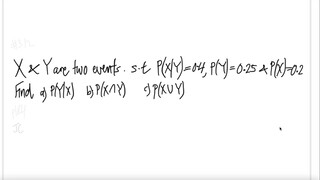 X & Y are two events. s.t P(X|Y)=0.4, P(Y)=0.25 & P(X)=0.2
Find a) P(Y|X) b) P(X∩Y) c) P(X∪Y)